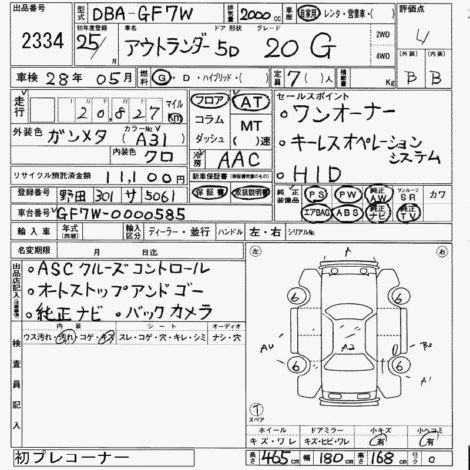 出品番号 型式 DBA-GF7W 排気量 2000cc 車歴 自家用・レンタ・営業車・( ) 評価点
2334 初年度登録 25年/ 月 車名 アウトランダー ドア 形状 5D グレード 20G 2WD 4WD 4
車検 28年 05月 燃料 G・D・ハイブリッド・( ) 定員 7( )人 積載量 Kg (外装) B (内装) B
走行 20,827 マイル Km フロア AT セールスポイント
コラム MT ・ワンオーナー
外装色 ガンメタ カラーNo (A31) ダッシュ ( )速 ・キーレスオペレーション
内装色 クロ 冷房 AAC システム
リサイクル預託済金額 11,100円 新車保証書 ・HID
登録番号 野田 301 サ 5061 保証書 取扱説明書 純正装備品 PS PW 純正AW サンルーフSR カワ
車台番号 GF7W-0000585 エアBAG ABS 純正ナビ 純正TV
輸入車 年式(西暦) 年 輸入区分 ディーラー・並行 ハンドル 左・右 シリアルNo.
名変期限 月 日迄
出品店記入(注意事項) ・ASCクルーズコントロール
・オートストップアンドゴー
・純正ナビ ・バックカメラ
検査員記入 内装 シート オーディオ
ウス汚れ・汚れ・コゲ・キズ スレ・コゲ・穴・キレ・シミ ナシ・穴
左 右
6 6
A2 A1
6 6
スペア
ホイール ドアミラー 小キズ 小ヘコミ
キズ・ワレ キズ・ヒビ・ワレ 有 有
初プレコーナー 長さ 465cm 幅 180cm 高さ 168cm 0